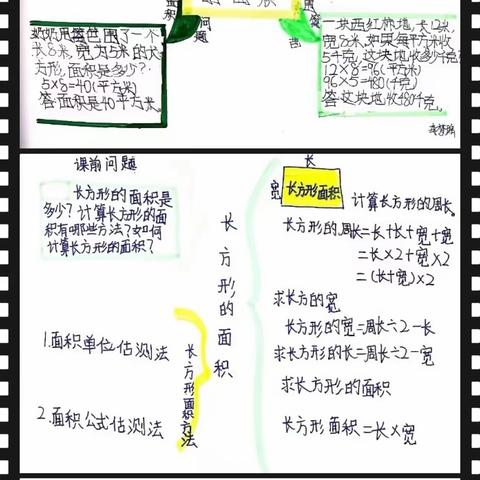 的面积
面积
问题
奶奶用篱笆围了一个
长8米,宽为5米的长
方形,面积是多少?
5×8=40(平方米)
答:面积是40平方米。
一块西红柿地,长12米,
宽8米,如果每平方米收
5千克,这块地收多少千克?
12×8=96(平方米)
96×5=480(千克)
答:这块地收480千克。
课前问题
长方形的面积是
多少?计算长方形的面
积有哪些方法?如何
计算长方形的面积?
长方形的面积
1.面积单位估测法
2.面积公式估测法
长方形面积方法
长
宽
长方形面积
计算长方形的周长
长方形的周长=长+长+宽+宽
=长×2+宽×2
=(长+宽)×2
求长方的宽
长方形的宽=周长÷2-长
求长方形的长=周长÷2-宽
求长方形的面积
长方形面积=长×宽